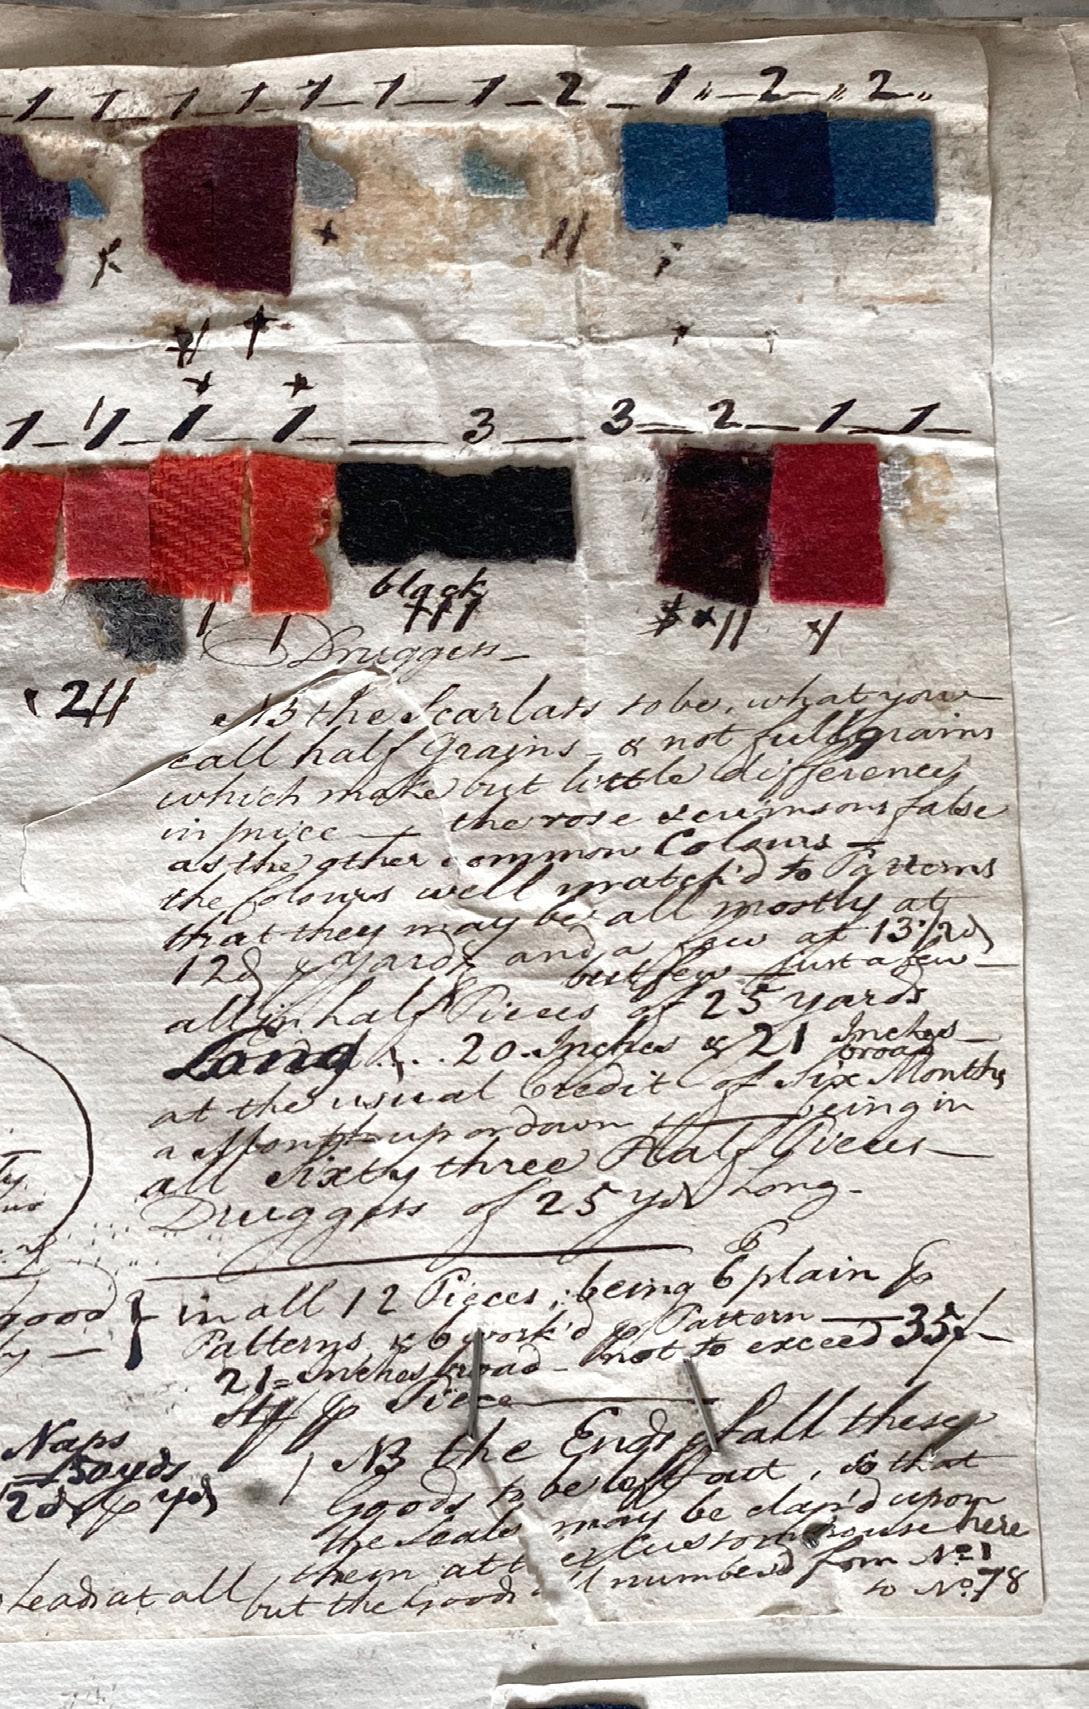 1 _ 1 _ 1 _ 1 _ 1 _ 1 _ 1 _ 2 _ 1 „ _ 2 _ „ 2 „
1 _ 1 _ 1 _ 1 _ _ 3 _ 3 _ 2 _ 1 _ 1 _
black
Druggets _
2
NB the Scarlats to be, what you
call half Grains _ & not full grains
which make but little difference
in price — the rose & crimsons false
as the other common Colours =
the Colours well match'd to Patterns
that they may be all mostly at
12d ⅌ yard, and a few at 13½d
but few just a few _
all in half Pieces of 25 yards
Long .... 20 Inches & 21 Inches
broad
at the usual Credit of Six Months
a Month up or down being in
all Sixty three Half Pieces _
Druggets of 25 yds Long -
good } in all 12 Pieces; being 6 plain ⅌
Patterns & 6 work'd ⅌ Pattern — 35/-
21= Inches broad - not to exceed
Stg ⅌ Piece
NB the Ends of all these
Goods to be left out, so that
the Seals may be clap'd upon
them at Custom house here
but the Goods numberd from No. 1
to No. 78
Naps
50 yds
⅌ yd
Lead at all